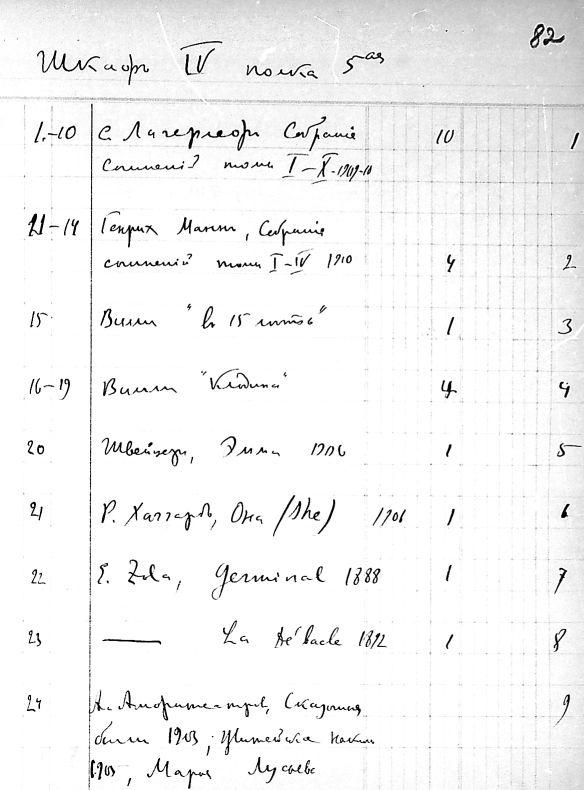 82
Шкафъ IV полка 5ая
1.-10 С. Лагерлефъ Собранiе 10 1
сочиненiй томы I-X-1909-10
11-14 Генрих Маннъ, Собранiе
сочиненiй томы I-IV 1910 4 2
15 Вилли "въ 15 лѣтъ" 1 3
16-19 Вилли "Клодина" 4 4
20 Швейцеръ, Эмма 1906 1 5
21 Р. Хаггардъ, Она (She) 1906 1 6
22 E. Zola, Germinal 1888 1 7
23 —— La Débacle 1892 1 8
24 А. Амфитеатровъ, Сказочныя 9
были 1903; Житейская накипь
1903, Марья Лусьева